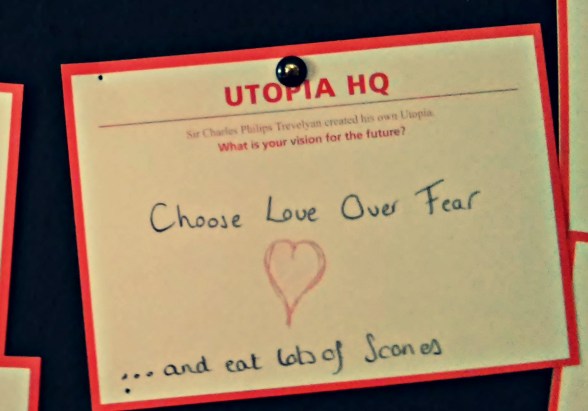 UTOPIA HQ
Sir Charles Philips Trevelyan created his own Utopia.
What is your vision for the future?
Choose Love Over Fear
...and eat lots of Scones